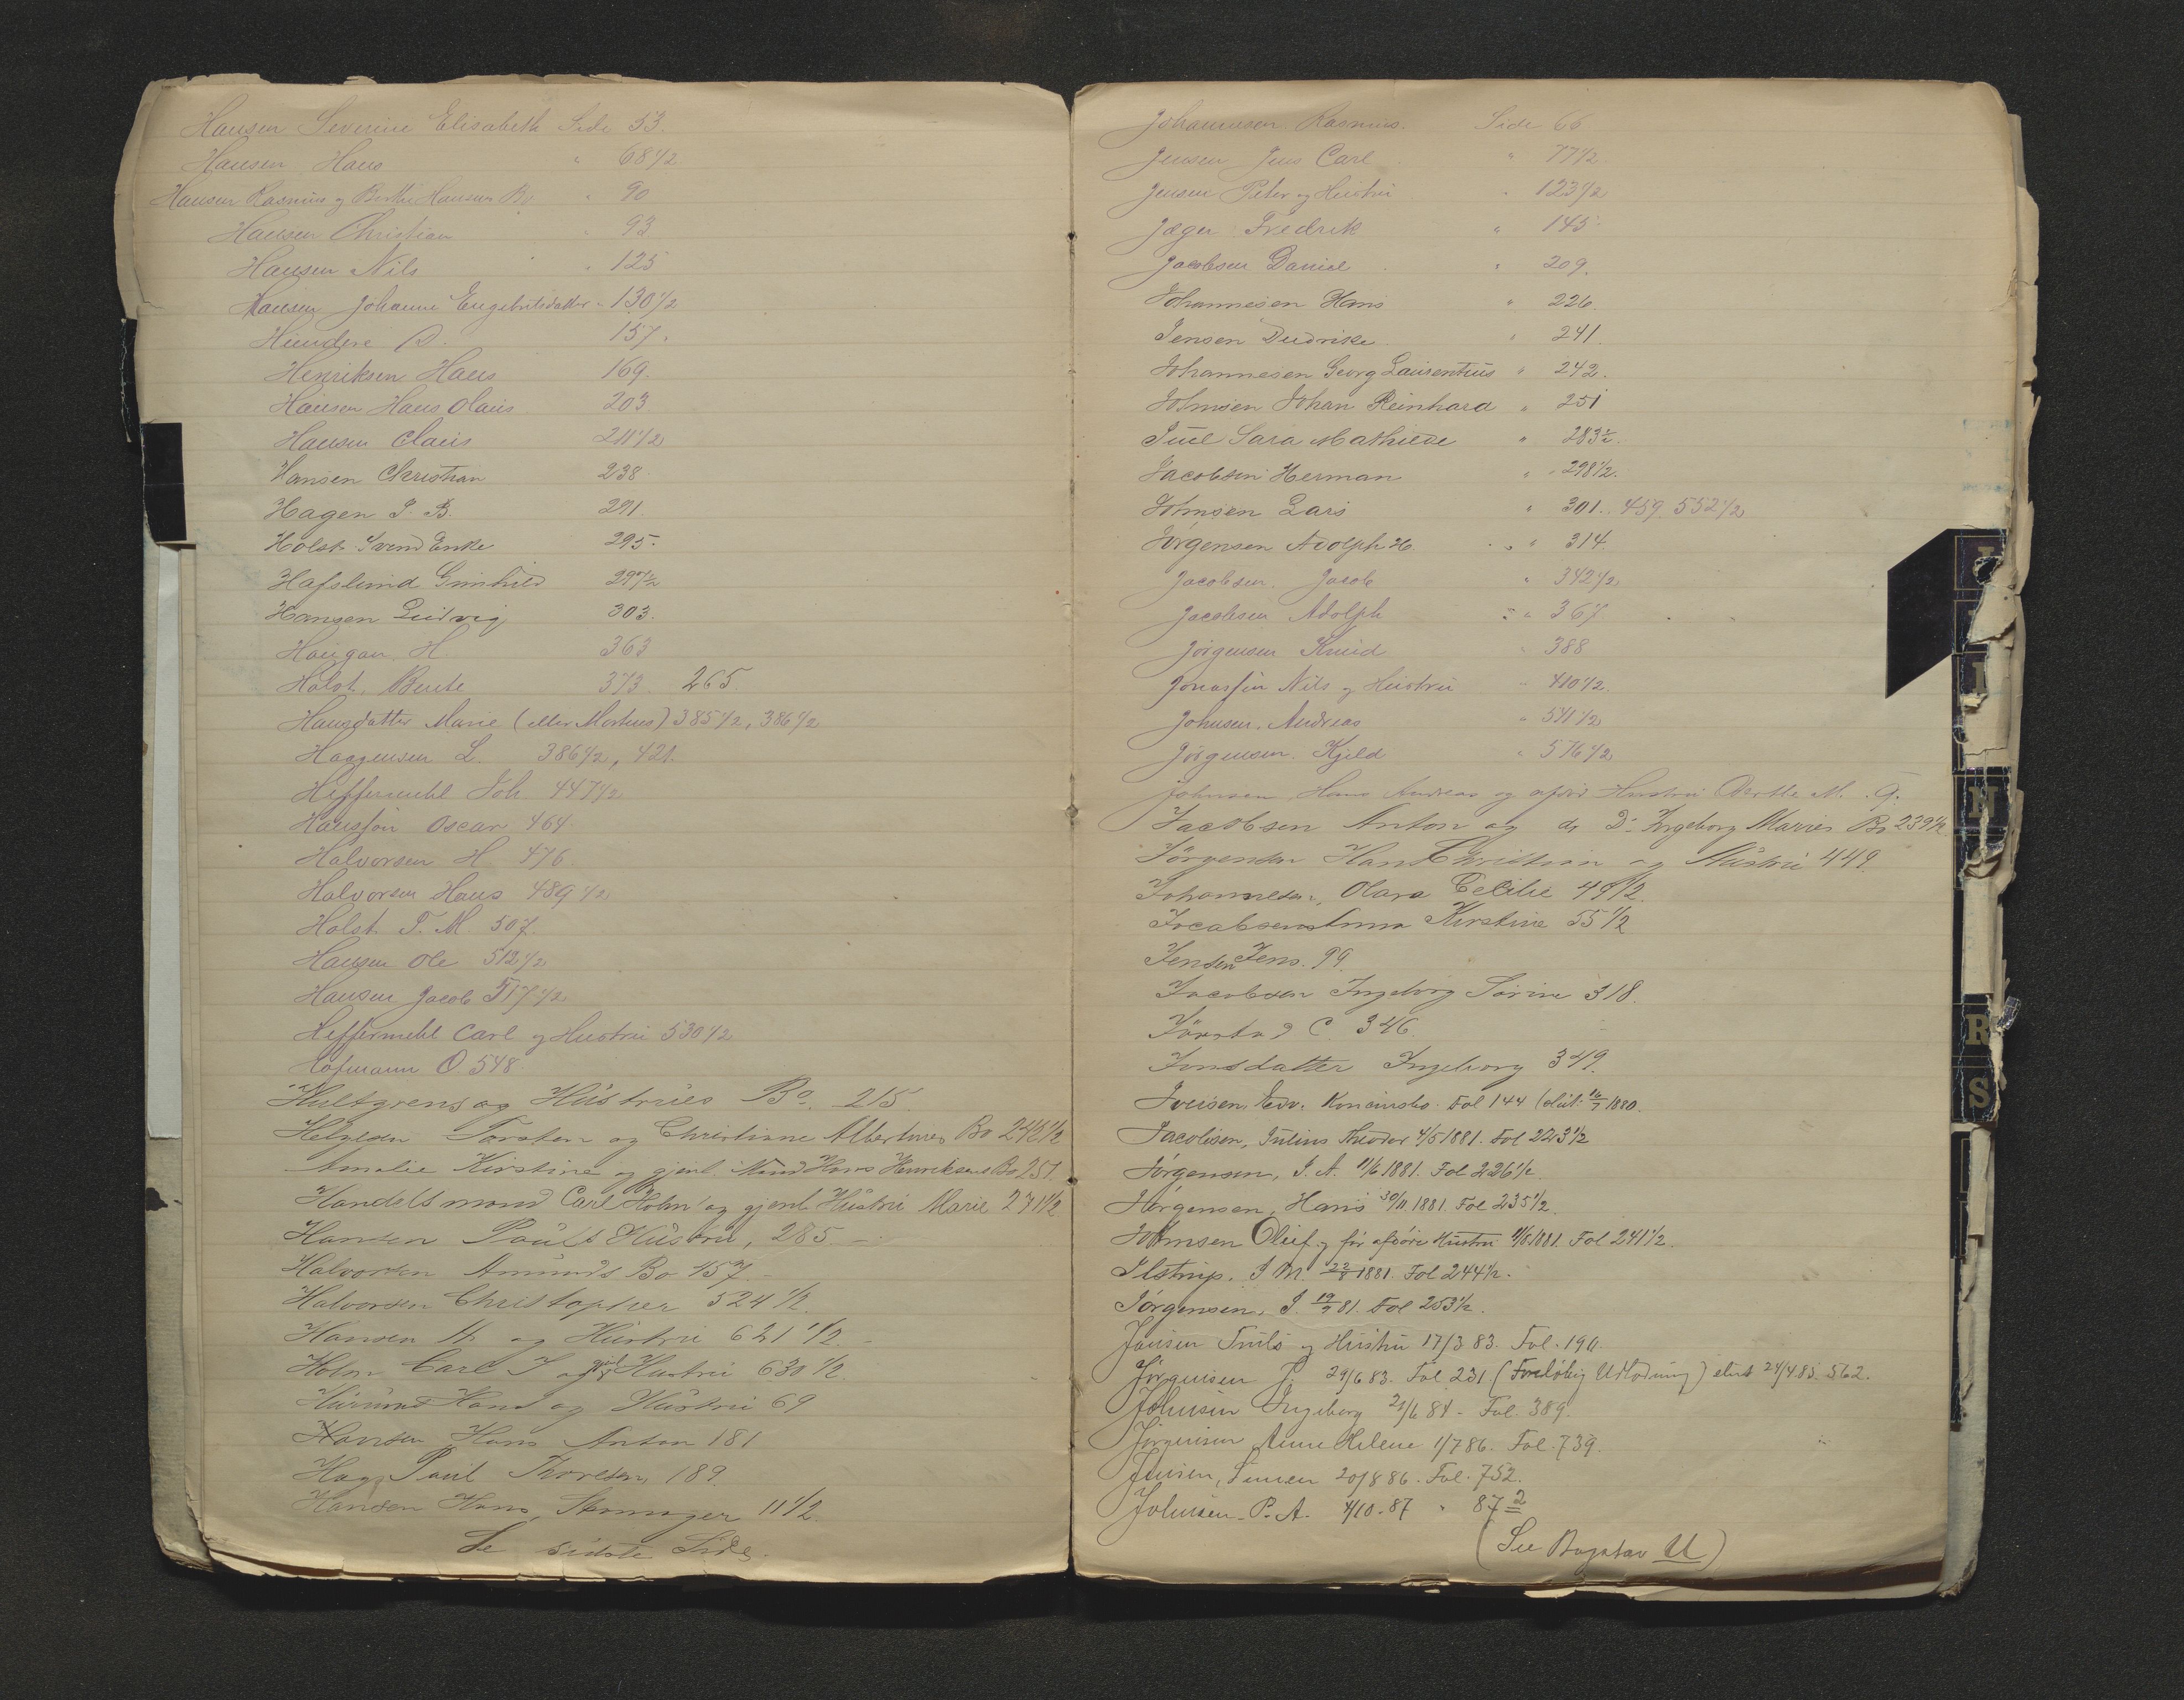 Hansen Severine Elisabeth Side 53.
Hansen Hans " 68 1/2
Hansen Rasmus og Berthe Hansens Bo " 90
Hansen Christian " 93
Hansen Nils " 125
Hansen Johanne Engebretsdatter " 130 1/2
Hundere D. 157.
Henriksen Hans 169.
Hansen Hans Olaus 203
Hansen Claus 211 1/2
Hansen Christian 238.
Hagen I. B. 291.
Holst Svend Enke 295.
Hafslund Gunhild 297 1/2
Hansen Ludvig 303.
Haugan H. 363
Holst, Bente 373. 265.
Hansdatter Marie (eller Mortens) 385 1/2, 386 1/2
Haagensen L. 386 1/2, 421.
Heffermehl Joh 447 1/2
Hansson Oscar 464.
Halvorsen H. 476
Halvorsen Hans 489 1/2
Holst T. M. 507.
Hansen Ole 512 1/2
Hansen Jacob 517 1/2
Heffermehl Carl og Hustru 530 1/2
Hofmann O. 548
Hultgrens og Hustrues Bo. 215
Helgesen Torsten og Christiane Albertines Bo 242 1/2
Amalie Kirstine og gjenl. Mand Hans Henriksens Bo 251.
Handelsmand Carl Holm og gjenl Hustru Marie 271 1/2
Hansen Pauls Hustru, 285 —
Halvorsen Amunds Bo 157.
Halvorsen Christopher 524 1/2.
Hansen H. og Hustru 621 1/2. –
Holm Carl J og gjl Hustru 630 1/2.
Hans og Hustru 69
Hansen Hans Anton 181
Hag Paul Thoresen, 189.
Hansen Hans, 11 1/2.
Se sidste Side.
Johannesen Rasmus. Side 66
Jensen Jens Carl " 77 1/2
Jensen Peter og Hustru " 123 1/2
Jæger Fredrik " 145.
Jacobsen Daniel " 209.
Johannesen Hans " 226.
Jensen Dedrikke " 241.
Johannesen Georg Laurentius " 242.
Johnsen Johan Reinhard " 251
Juel Sara Mathilde " 283 1/2.
Jacobsen Herman " 298 1/2.
Johnsen Lars " 301. 459. 552 1/2
Jørgensen Adolph H. " 314.
Jacobsen Jacob " 342 1/2
Jacobsen Adolph " 367
Jørgensen Knud " 388
Jonassen Nils og Hustru " 410 1/2.
Johnsen. Andreas " 541 1/2
Jørgensen. Kjeld " 576 1/2
Johnsen, Hans Andreas og afdød Hustru Berthe M. 9.
Jacobsen Anton og Ingeborg Maries Bo 239 1/2
Jörgensen Hans Christian og Hustru 449.
Johannesen, Olava Cecilie 49 1/2.
Jacobsen Anna Kirstine 55 1/2
Jensen Jens. 99.
Jacobsen Ingeborg Sørine 318.
Jörstad C. 346
Jonsdatter Ingeborg 349.
Iversen, Edv. Konkursbo. Fol 144 (slut. 16/7 1880.
Jacobsen, Julius Theodor 4/5 1881. Fol 223 1/2
Jørgensen, J. A. 11/6 1881. Fol 226 1/2.
Jørgensen, Hans 30/11 1881. Fol 235 1/2.
Johnsen Oluf og før afdøde Hustru 11/8 1881. Fol 241 1/2.
Ilstrup. J M. 22/8 1881. Fol 244 1/2.
Jørgensen, J. 19/9 81. Fol 253 1/2.
Jansen Truls og Hustru 17/3 83. Fol. 190.
Jørgensen J. 29/6 83. Fol 231 (Foreløbig Udlodning) slut 24/4 85. 562.
Johnsen Ingeborg 21/6 84 – Fol. 389.
Jørgensen Anne Helene 1/7 86. Fol. 739.
Jensen, Simen 20/8 86. Fol. 752.
Johnsen. P. A. 4/10-87 " 87 2
(See Bogstav U)
I
J
N
R
S